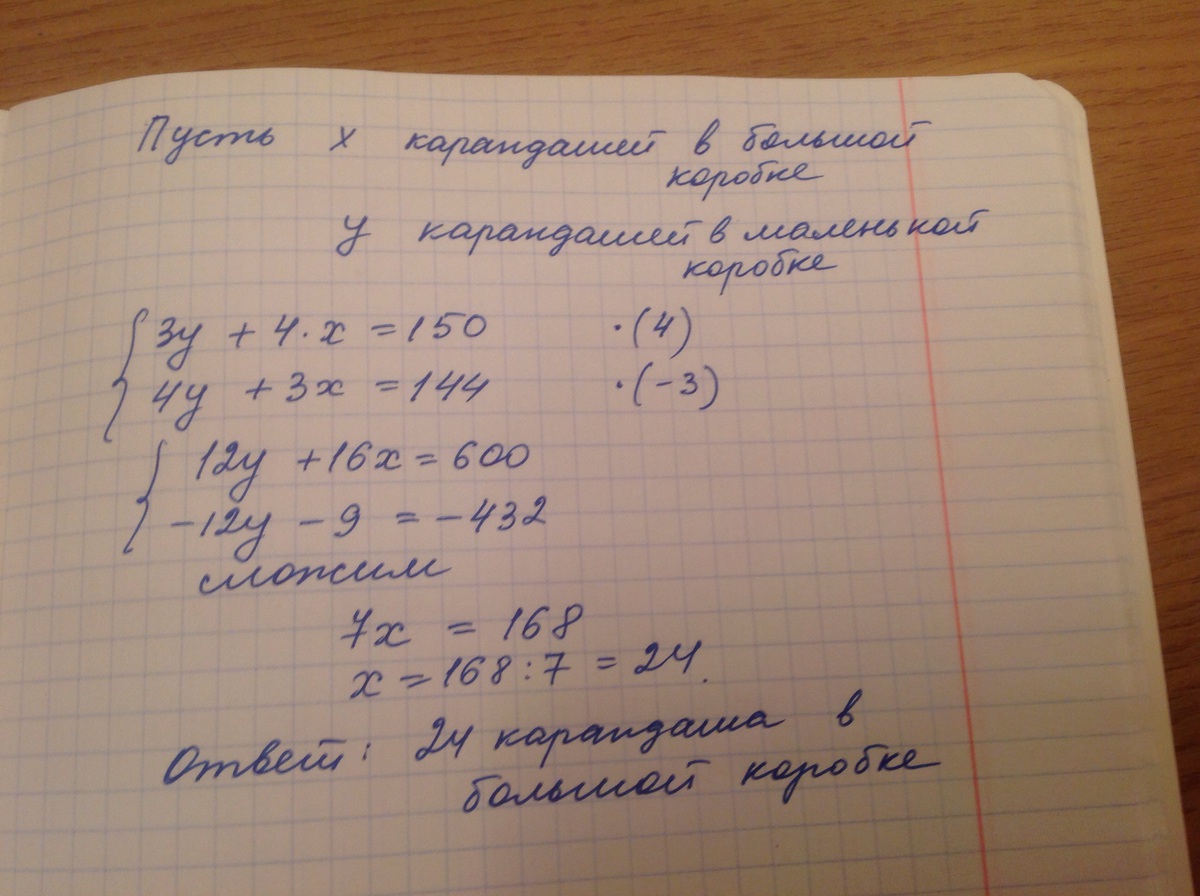 Пусть х карандашей в большой
коробке
у карандашей в маленькой
коробке
3y + 4·x = 150 ·(4)
4y + 3x = 144 ·(-3)
12y + 16x = 600
-12y - 9 = -432
сложим
7x = 168
x = 168:7 = 24.
Ответ: 24 карандаша в
большой коробке